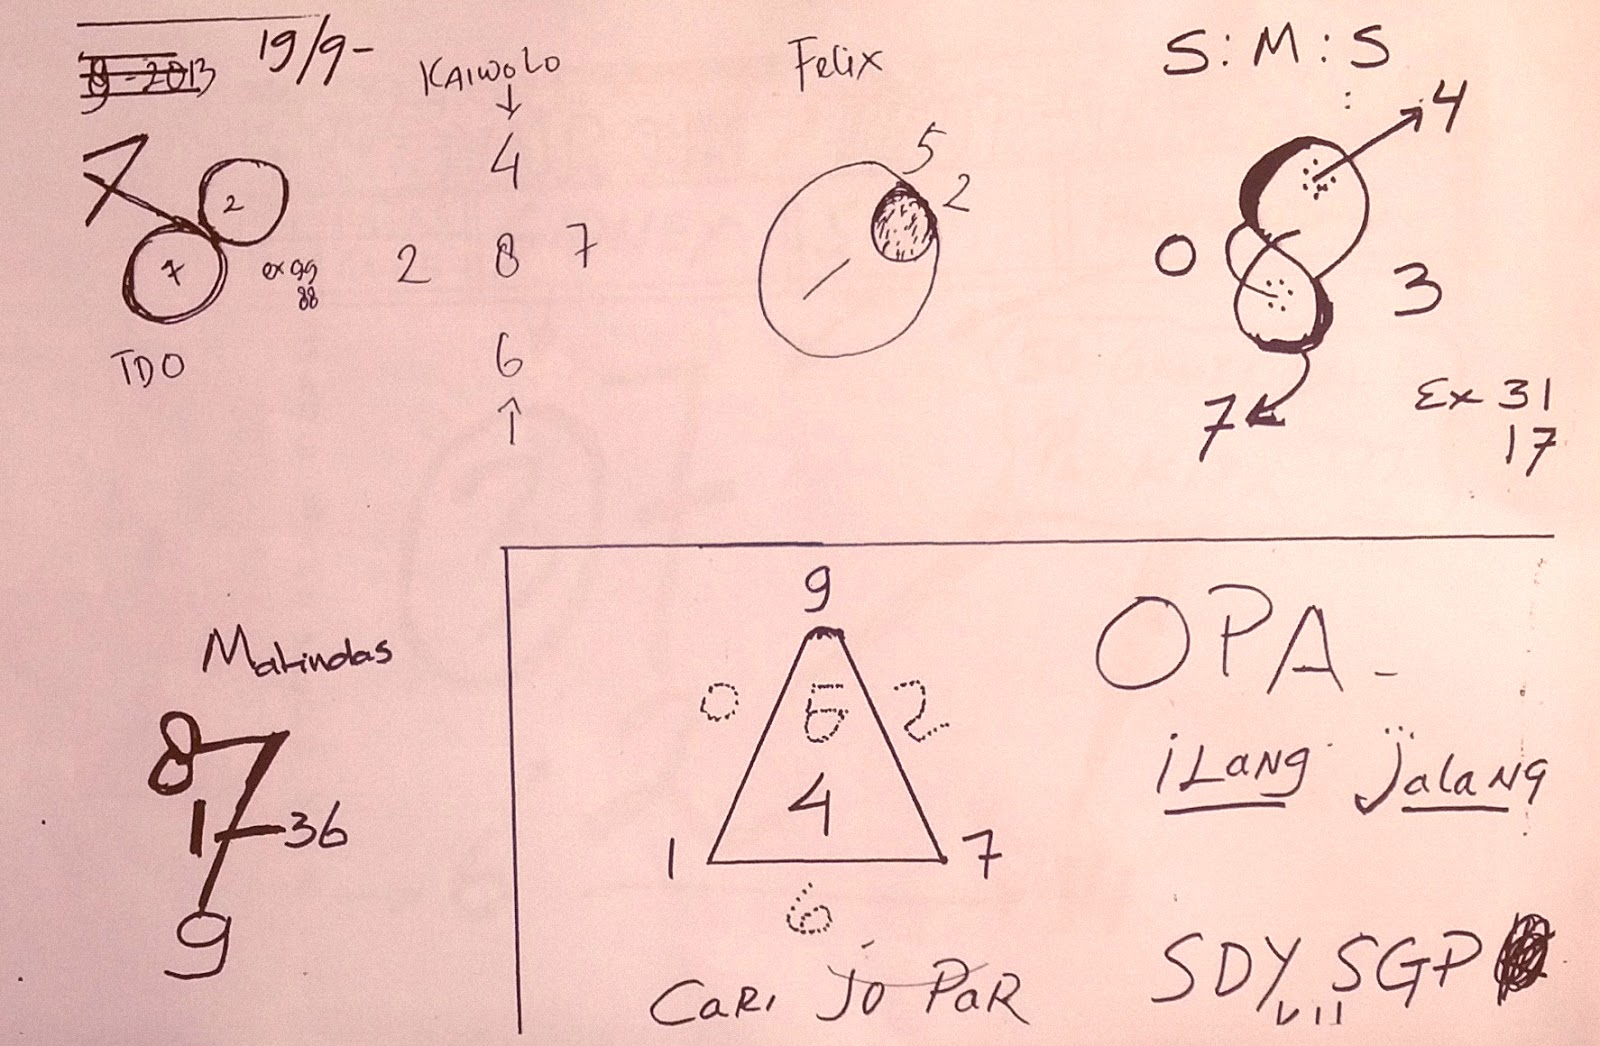 19/9-
KAIWOLO
4
2 8 7
6
7
2
7
ex 99
88
TDO
Felix
5
2
S:M:S
4
0
3
7
Ex 31
17
8 7
1
36
9
9
0 5 2
4
1 7
6
CaRi Jo PaR
OPA -
iLaNg jalaNg
SDY SGP